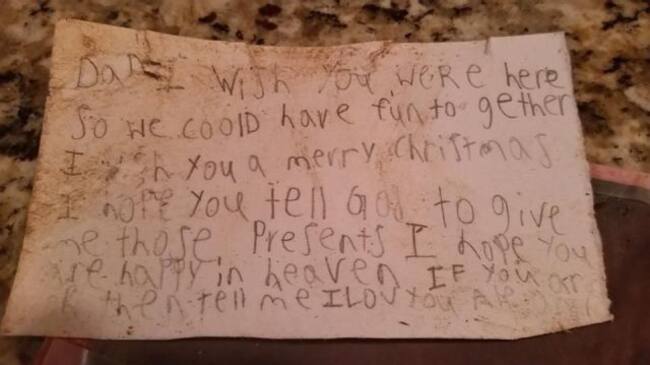 Dad I wish you were here
So we coolD have fun to gether
I wish you a merry Christmas
I hope you tell God to give
me those Presents I hope you
are happy in heaven IF you are
then tell me I LOV You